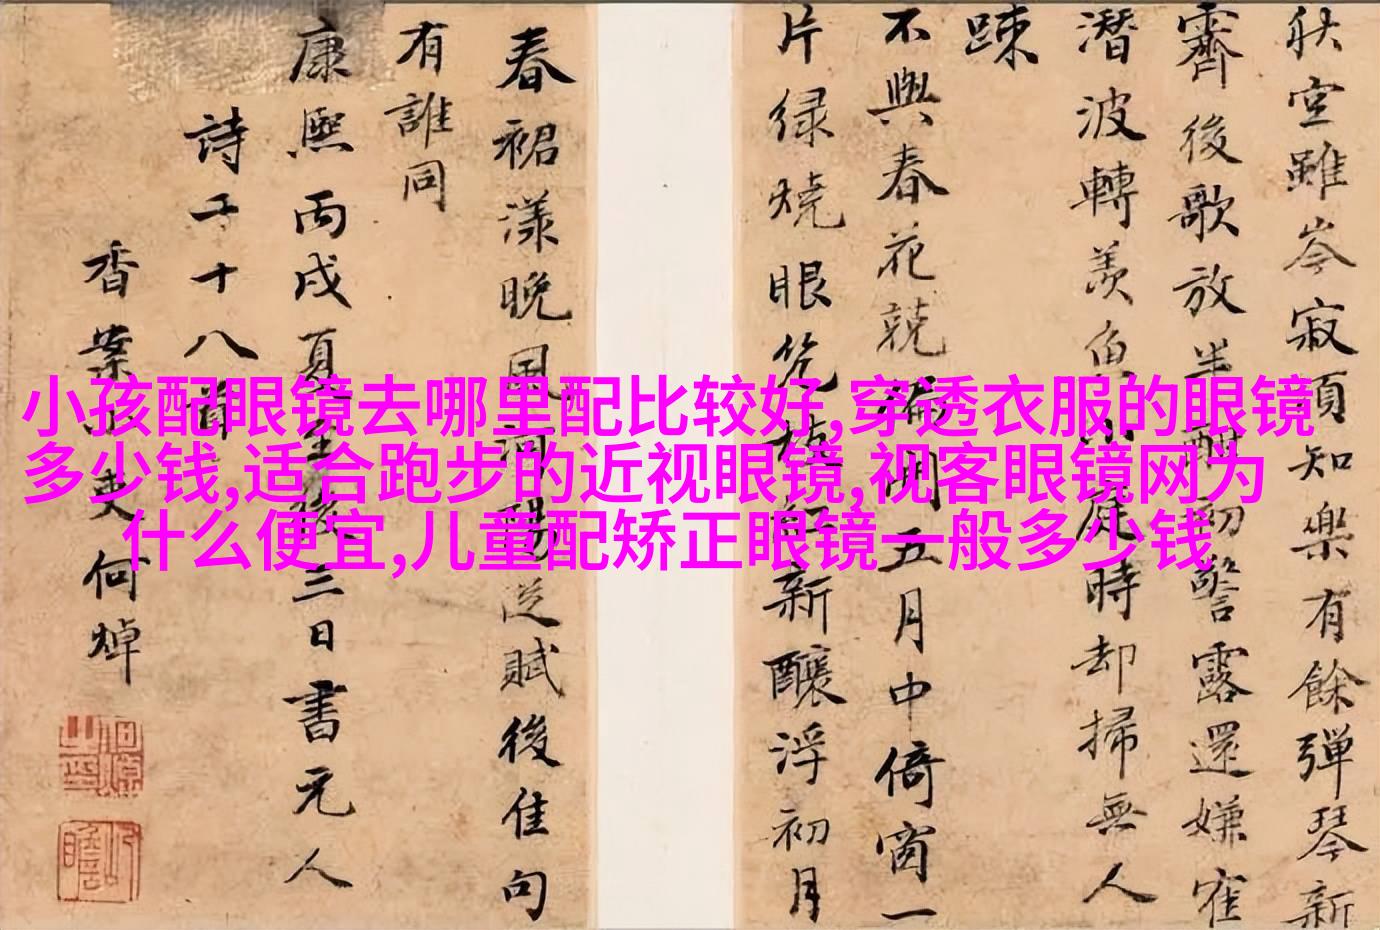 秋空雖岑寂頂知樂有餘彈琴新
霽後歌放半酣初警露還嫌寉
潛波轉羨魚小庭時却掃無人
踈
不與春花競開五月中倚窗一
片緑燒眼枝紅新釀浮初月
春裙漾晚風陽從賦後佳句
有誰同
康熙丙戌夏至後三日書元人
詩二十八首
香案小吏何焯
小孩配眼镜去哪里配比较好,穿透衣服的眼镜
多少钱,适合跑步的近视眼镜,视客眼镜网为
什么便宜,儿童配矫正眼镜一般多少钱